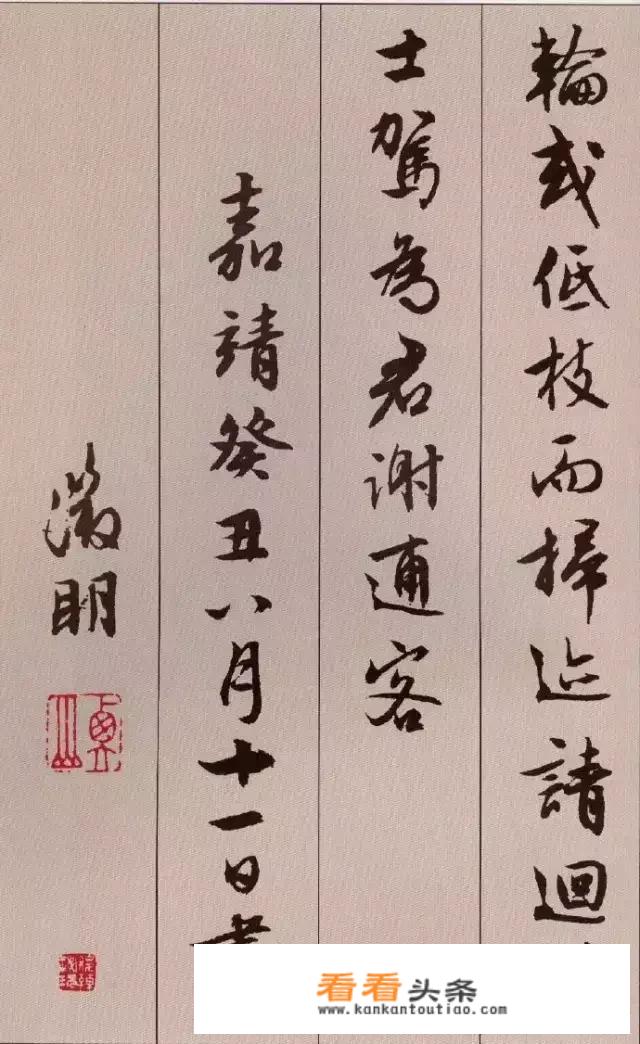 輪或低枝而掃迹請迴
士駕為君謝逋客
嘉靖癸丑八月十一日書
徵明
看看头条
www.kankantoutiao.com